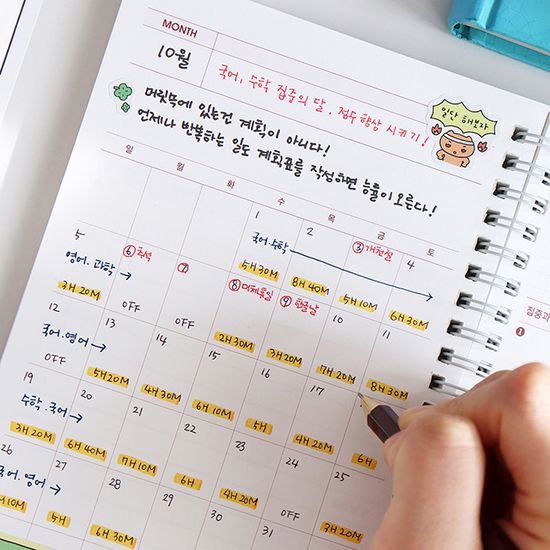 MONTH
10월
국어, 수학 집중의 달. 점수 향상 시키기!
머릿속에 있는건 계획이 아니다!
언제나 반복하는 일도 계획표를 작성하면 능률이 오른다!
일단 해보자
일 월 화 수 목 금 토
1 2 ③ 개천절 4
국어.수학 →
5H 30M 8H 40M 5H 10M 6H 30M
5 ⑥ 추석 ⑦ ⑧ 대체휴일 ⑨ 한글날 10 11
영어.과학 →
3H 20M OFF OFF 2H 30M 3H 20M 7H 20M 8H 30M
12 13 14 15 16 17
국어.영어 →
OFF 5H 20M 4H 30M 6H 10M 5H 4H 20M 6H
19 20 21 22 23 24 25
수학.국어 →
3H 20M 6H 40M 7H 10M 6H 4H 20M OFF 3H 20M
26 27 28 29 30 31
국어.영어 →
10M 5H 6H 30M
집중과
1